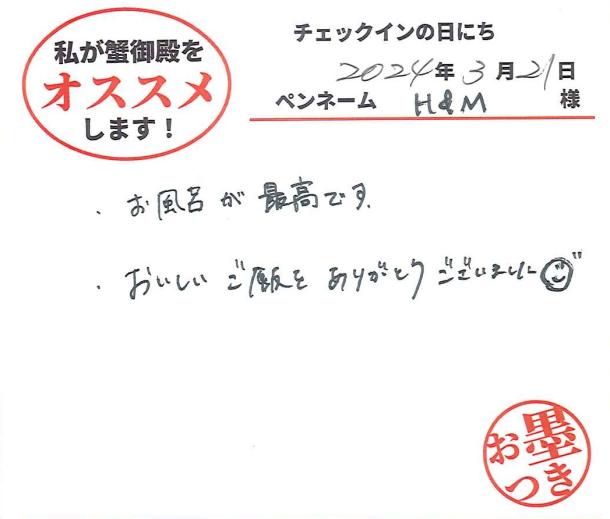 私が蟹御殿を
オススメ
します!
チェックインの日にち
2024年3月21日
ペンネーム H&M 様
・お風呂が最高です。
・おいしいご飯をありがとうございました
お墨
つき